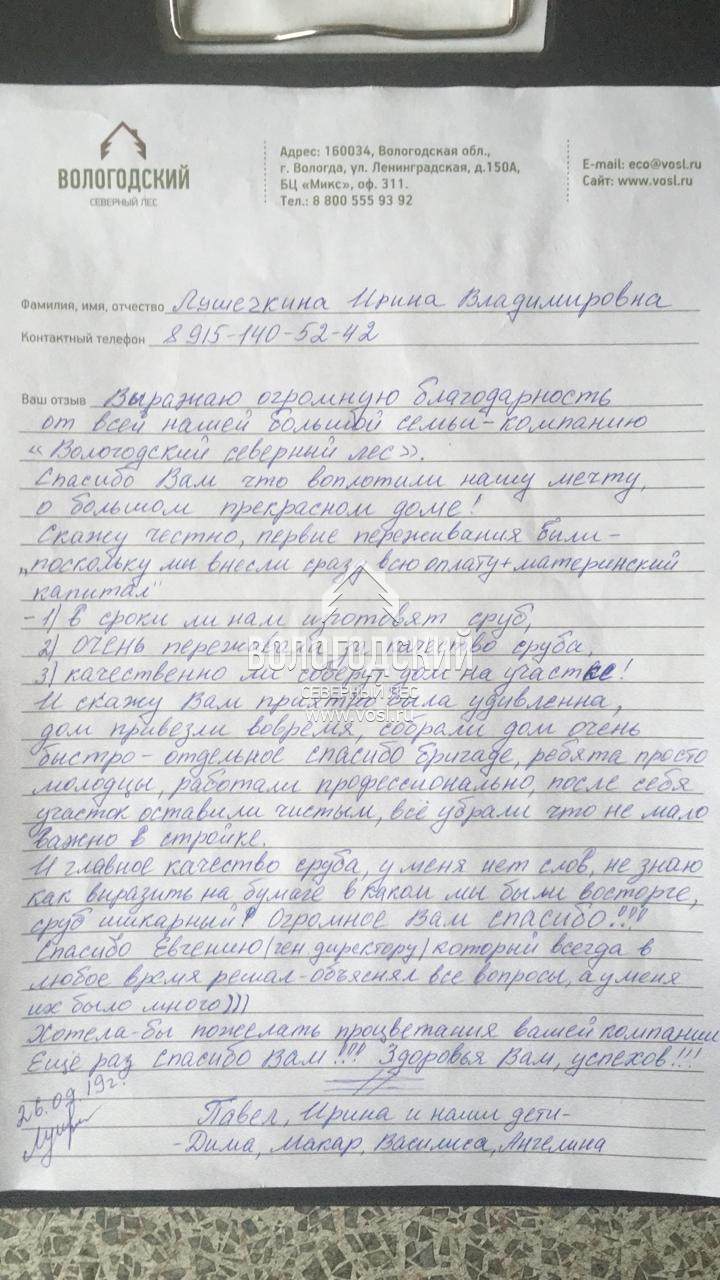 ВОЛОГОДСКИЙ
СЕВЕРНЫЙ ЛЕС
Адрес: 160034, Вологодская обл.,
г. Вологда, ул. Ленинградская, д.150А,
БЦ «Микс», оф. 311.
Тел.: 8 800 555 93 92
E-mail: eco@vosl.ru
Сайт: www.vosl.ru
Фамилия, имя, отчество Лушечкина Ирина Владимировна
Контактный телефон 8915-140-52-42
Ваш отзыв Выражаю огромную благодарность
от всей нашей большой семьи - компанию
«Вологодский северный лес».
Спасибо Вам что воплотили нашу мечту,
о большом прекрасном доме!
Скажу честно, первые переживания были -
„поскольку мы внесли сразу всю оплату + материнский
капитал"
- 1) в сроки ли нам изготовят сруб,
2) ОЧЕНЬ переживали за качество сруба,
3) качественно ли соберут дом на участке!
И скажу Вам приятно была удивленна,
дом привезли вовремя, собрали дом очень
быстро - отдельное спасибо бригаде, ребята просто
молодцы, работали профессионально, после себя
участок оставили чистым, всё убрали что не мало
важно в стройке.
И главное качество сруба, у меня нет слов, не знаю
как выразить на бумаге в каком мы были восторге,
сруб шикарный! Огромное Вам спасибо!!!
Спасибо Евгению (ген. директору) который всегда в
любое время решал - объяснял все вопросы, а у меня
их было много)))
Хотела-бы пожелать процветания вашей компании
Ещё раз спасибо Вам!!! Здоровья Вам, успехов!!!
26.09.19г.
Павел, Ирина и наши дети -
- Дима, Макар, Василиса, Ангелина
ВОЛОГОДСКИЙ
СЕВЕРНЫЙ ЛЕС
www.vosl.ru